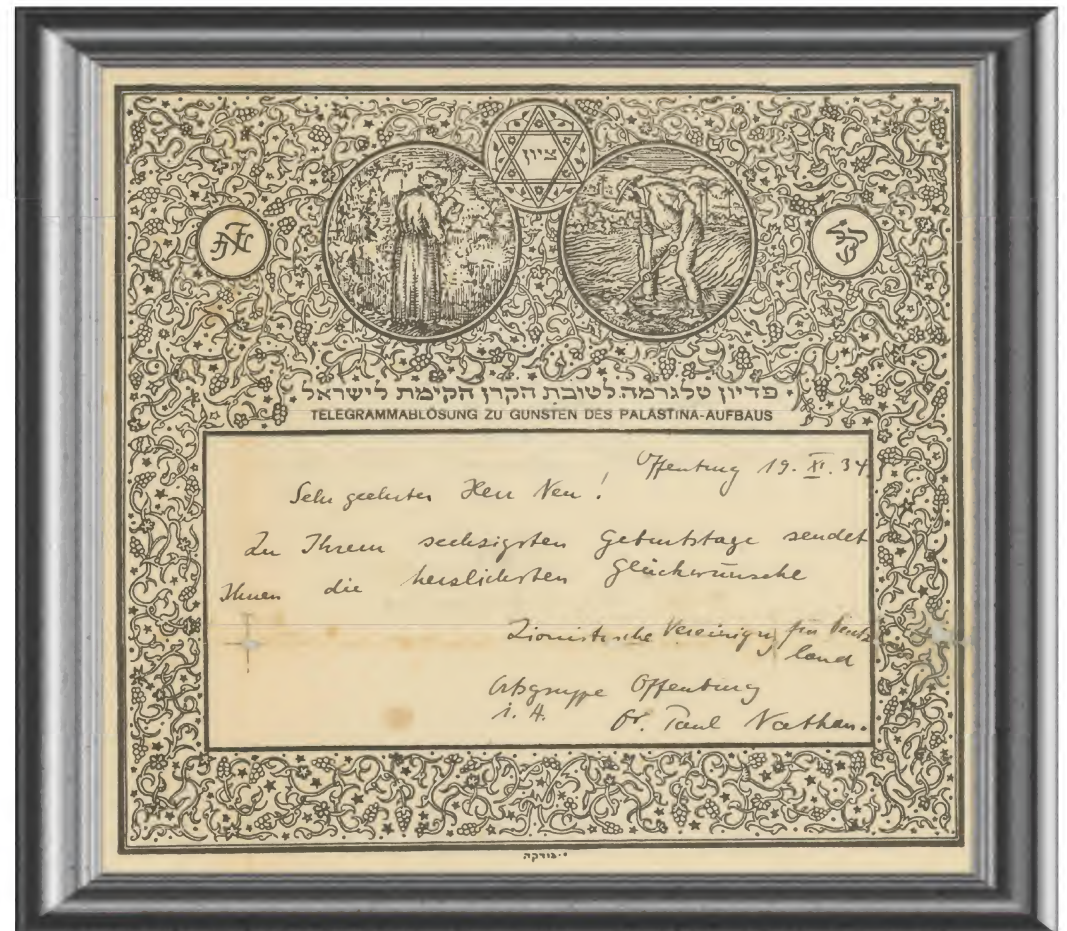 ציון
JNF
קקל
פדיון טלגרמה לטובת הקרן הקימת לישראל
TELEGRAMMABLÖSUNG ZU GUNSTEN DES PALÄSTINA-AUFBAUS
Offenburg 19. XI. 34
Sehr geehrter Herr Neu!
Zu Ihrem sechsigsten Geburtstage sendet
Ihnen die herzlichsten Glückwünsche
Zionistische Vereinigung für Deutsch
land
Ortsgruppe Offenburg
i. A. Dr. Paul Nathan.